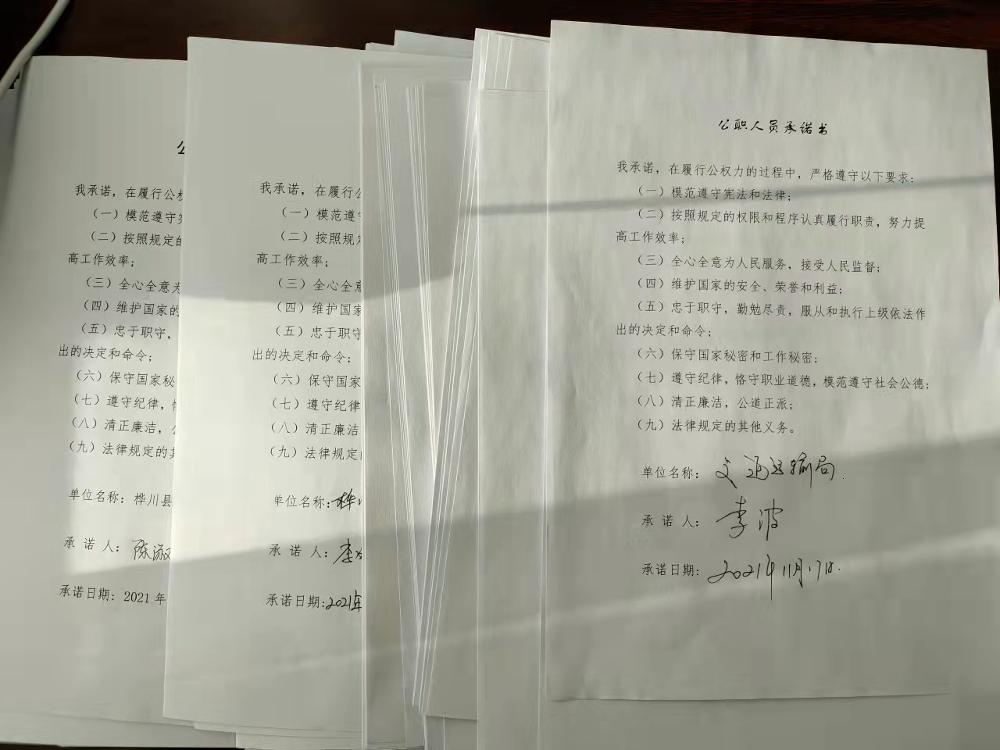 我承诺，在履行公
（一）模范遵守
（二）按照规定的
高工作效率；
（三）全心全意
（四）维护国家的
（五）忠于职守，
出的决定和命令；
（六）保守国家秘
（七）遵守纪律，
（八）清正廉洁，
（九）法律规定的
单位名称：桦川县
承 诺 人：陈淑
承诺日期：2021 年
我承诺，在履行公
（一）模范遵
（二）按照规
高工作效率；
（三）全心全意
（四）维护国家
（五）忠于职守
出的决定和命令；
（六）保守国家
（七）遵守纪律
（八）清正廉洁
（九）法律规定
单位名称：桦
承 诺 人：李
承诺日期：2021年
公职人员承诺书
我承诺，在履行公权力的过程中，严格遵守以下要求：
（一）模范遵守宪法和法律；
（二）按照规定的权限和程序认真履行职责，努力提
高工作效率；
（三）全心全意为人民服务，接受人民监督；
（四）维护国家的安全、荣誉和利益；
（五）忠于职守，勤勉尽责，服从和执行上级依法作
出的决定和命令；
（六）保守国家秘密和工作秘密；
（七）遵守纪律，恪守职业道德，模范遵守社会公德；
（八）清正廉洁，公道正派；
（九）法律规定的其他义务。
单位名称：交通运输局.
承 诺 人：李波
承诺日期：2021年11月17日.